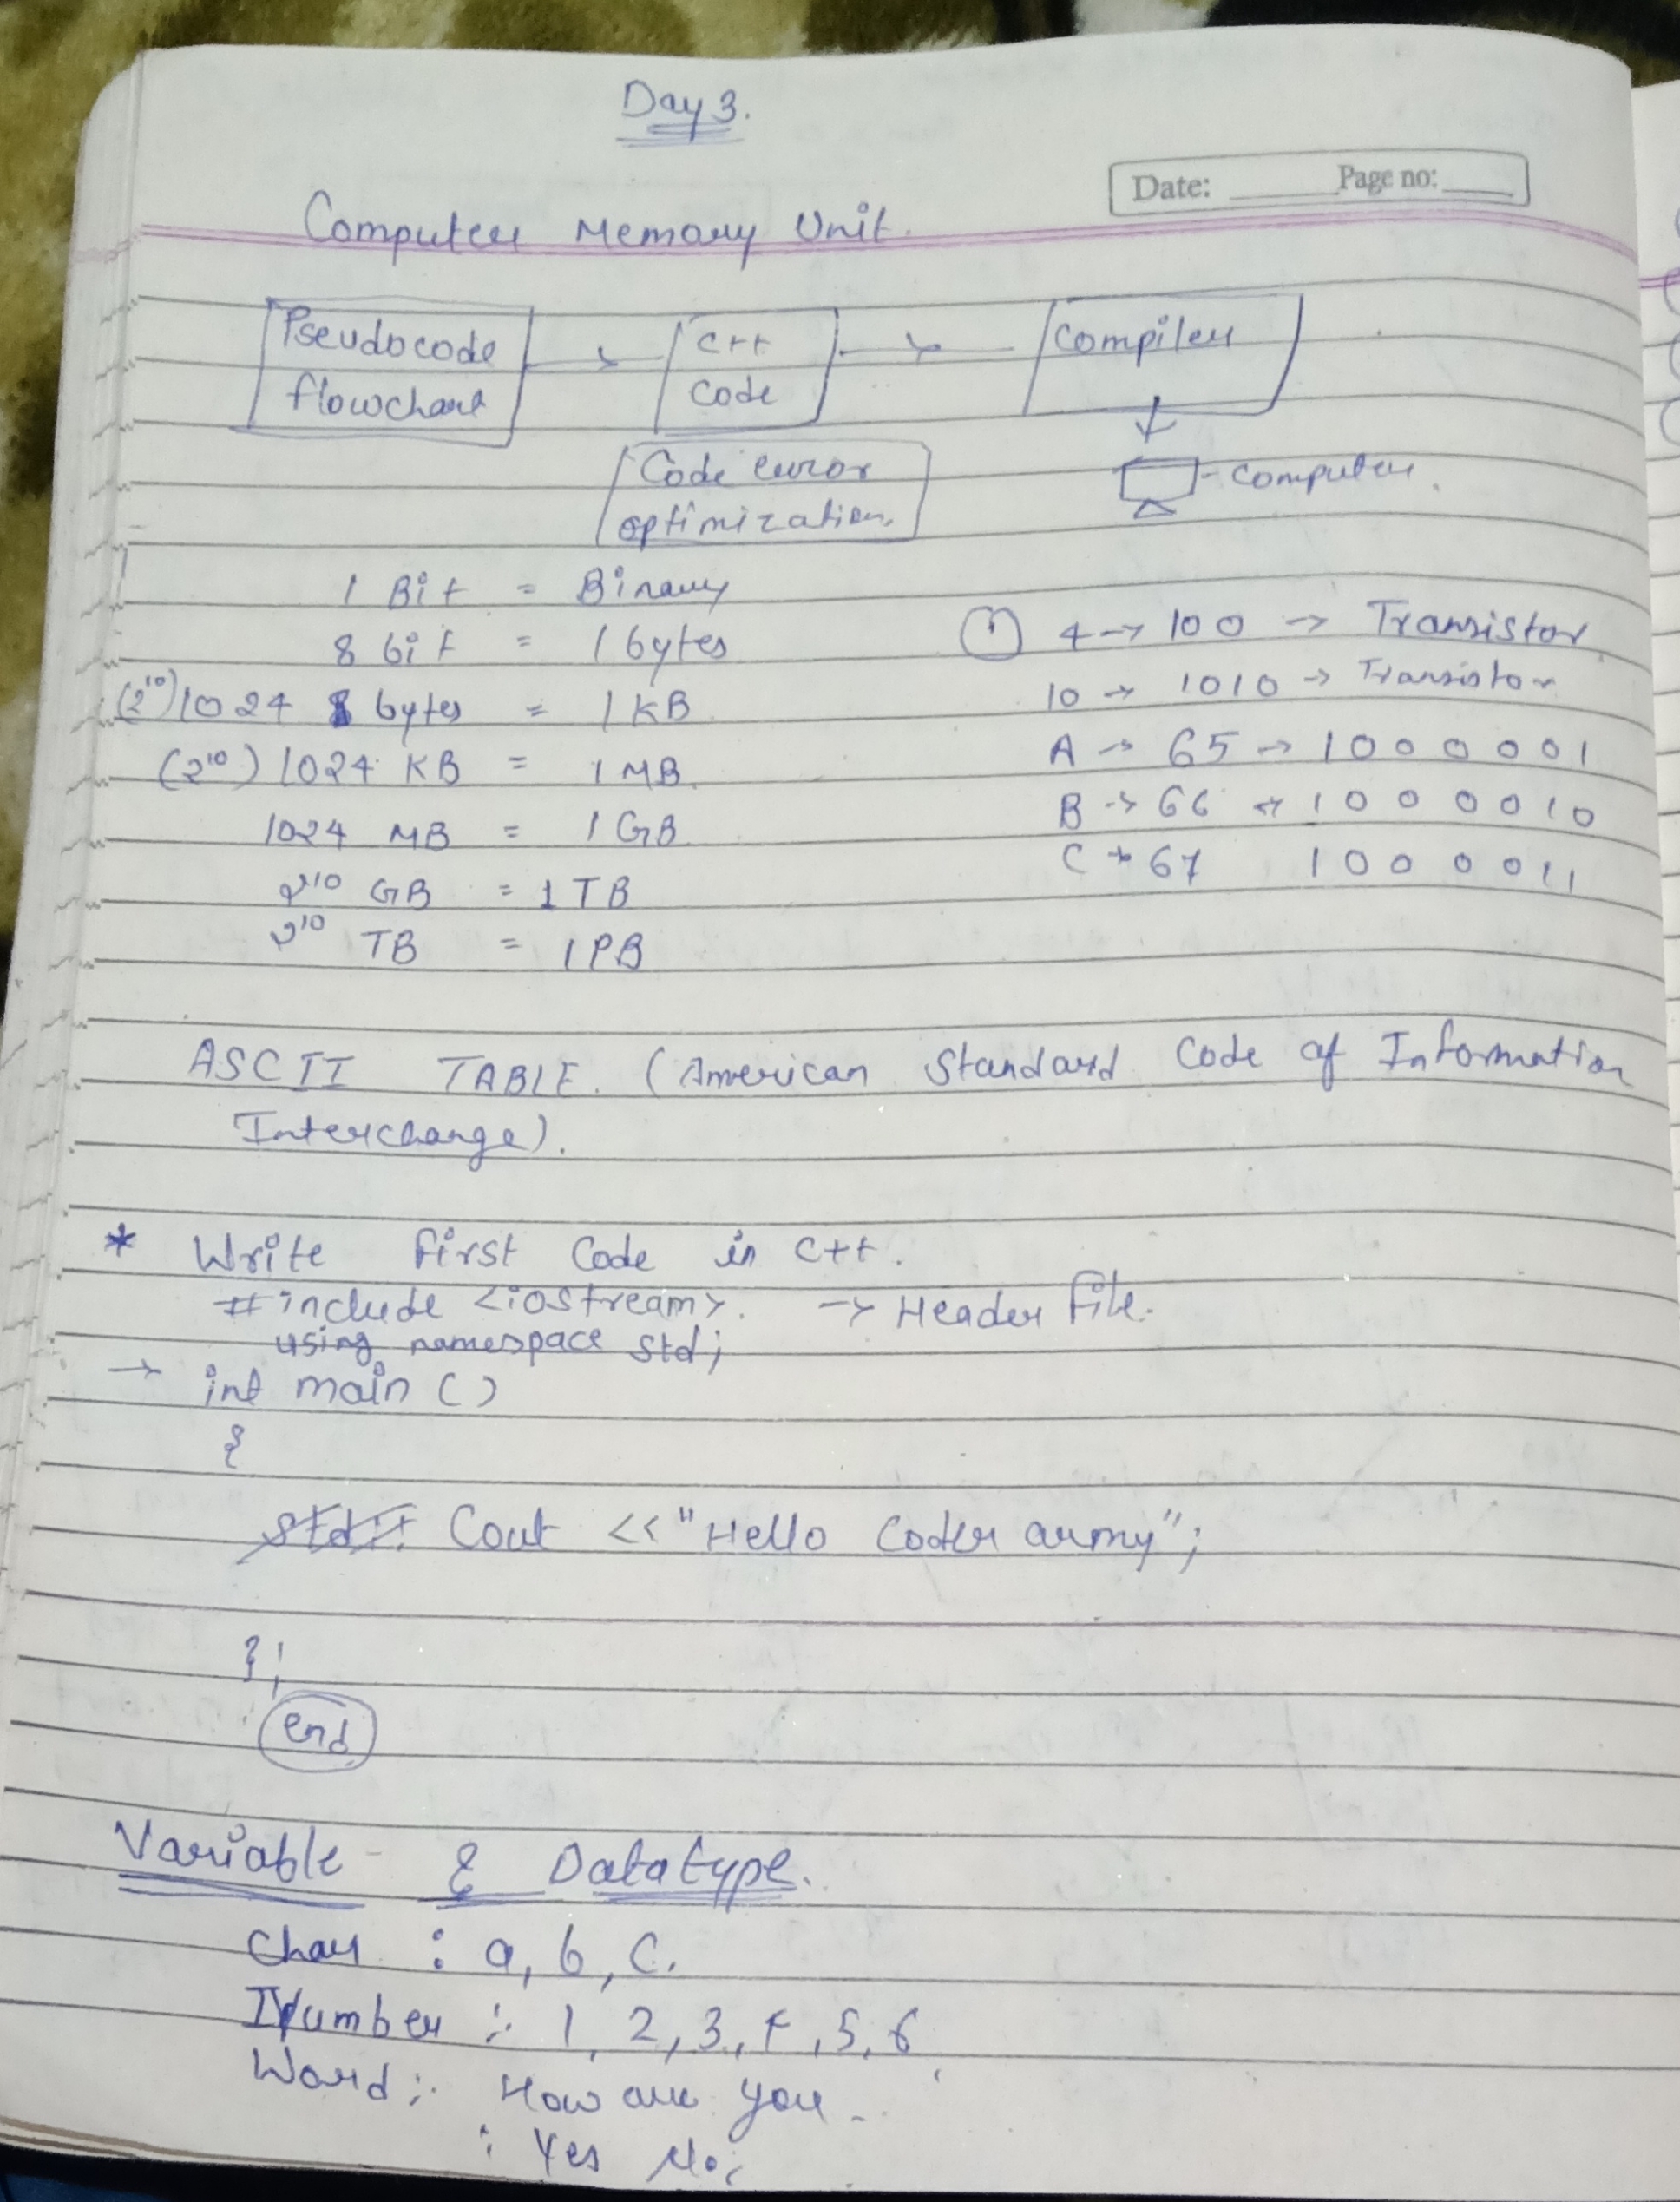 Day 3.
Date: Page no:
Computer Memory Unit.
Pseudocode flowchart → C++ Code → Compiler
Code error optimization.
computer.
1 Bit = Binary
8 bit = 1 bytes
(2^10) 1024 bytes = 1 KB
(2^10) 1024 KB = 1 MB.
1024 MB = 1 GB.
2^10 GB = 1 TB
2^10 TB = 1 PB
① 4 → 100 → Transistor
10 → 1010 → Transistor
A → 65 → 1000001
B → 66 → 1000010
C → 67 1000011
ASCII TABLE. (American Standard Code of Information
Interchange).
* Write first Code in C++.
#include <iostream>. → Header file.
using namespace std;
→ int main ()
{
Cout << "Hello Coder army";
};
end
Variable & Datatype.
Char : a, b, C.
Number :- 1, 2, 3, 4, 5, 6
Word :- How are you.
: Yes No;